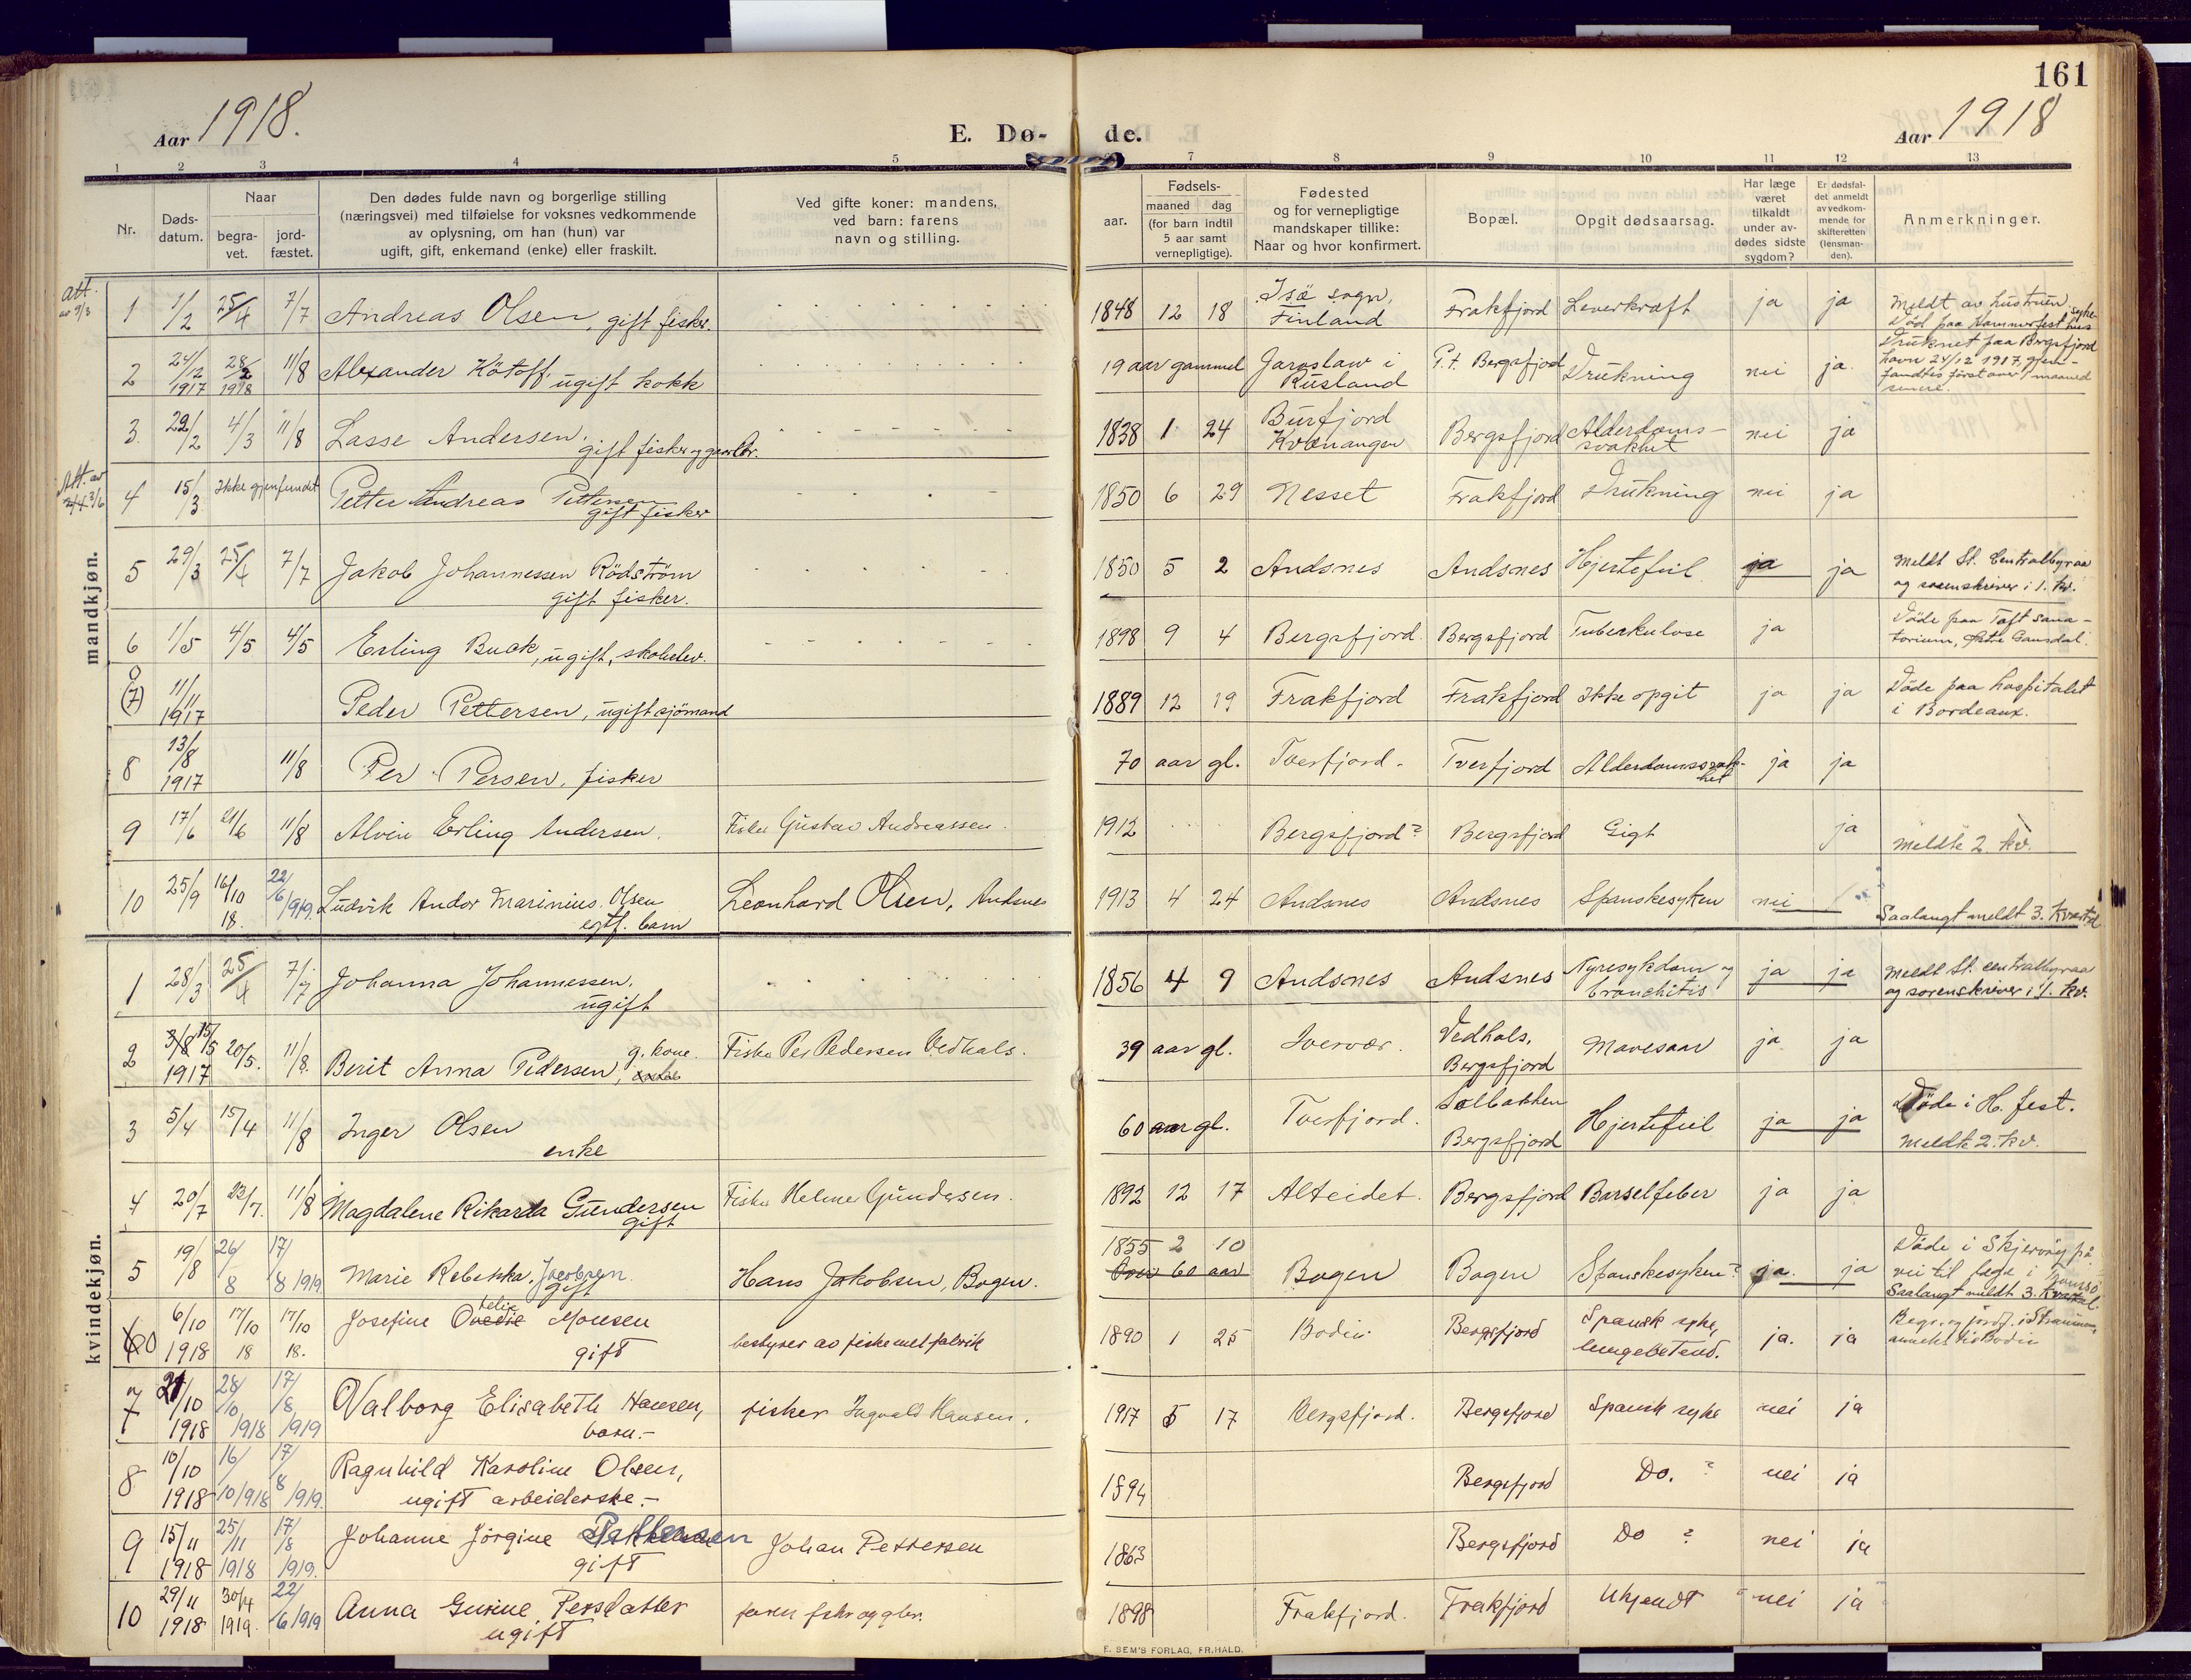 161
Aar 1918.
E. Dø-
de.
Aar 1918
1 2 3 4 5
7 8 9 10 11 12 13
Nr.
Døds-
datum.
Naar
begra-
vet.
jord-
fæstet.
Den dødes fulde navn og borgerlige stilling
(næringsvei) med tilføielse for voksnes vedkommende
av oplysning, om han (hun) var
ugift, gift, enkemand (enke) eller fraskilt.
Ved gifte koner: mandens,
ved barn: farens
navn og stilling.
aar.
Fødsels-
maaned dag
(for barn indtil
5 aar samt
vernepligtige).
Fødested
og for vernepligtige
mandskaper tillike:
Naar og hvor konfirmert.
Bopæl.
Opgit dødsaarsag.
Har læge
været
tilkaldt
under av-
dødes sidste
sygdom?
Er dødsfal-
det anmeldt
av vedkom-
mende for
skifteretten
(lensman-
den).
Anmerkninger.
mandkjøn.
Att.
1 1/2 25/4 7/7 Andreas Olsen, gift fisker. 1848 12 18 Isö sogn, Finland Frakfjord Leverkræft ja ja Meldt av hustruen. Död paa Hammerfest sykehus
2 24/12 1917 28/2 1918 11/8 Alexander Kötoff, ugift kokk 19 aar gammel Jaroslaw i Rusland P.t. Bergsfjord Drukning nei ja. Druknet paa Bergsfjord havn 24/12 1917, gjenfandtes først over 1 maaned senere.
3 22/2 4/3 11/8 Lasse Andersen, gift fisker og gaardbr. 1838 1 24 Burfjord Kvænangen Bergsfjord Alderdoms-svakhet nei ja
Att. av
4 15/3 Ikke gjenfundet Petter Andreas Pettersen gift fisker 1850 6 29 Nesset Frakfjord Drukning nei ja
5 29/3 25/4 7/7 Jakob Johannessen Rödström gift fisker. 1850 5 2 Andsnes Andsnes Hjertefeil ja ja Meldt St. Centralbyraa og sorenskriver i 1. kv.
6 1/5 4/5 4/5 Erling Buck, ugift, skoleelev. 1898 9 4 Bergsfjord. Bergsfjord Tuberkulose ja Döde paa Toft sanatorium,
0
(7) 11/11 1917 Peder Pettersen, ugift sjömand 1889 12 19 Frakfjord Frakfjord Ikke opgit ja ja Döde paa hospitalet i Bordeaux.
8 13/8 1917 11/8 Per Persen, fisker 70 aar gl. Tverfjord. Tverfjord Alderdomssvakhet ja ja
9 17/6 21/6 11/8 Alvin Erling Andersen. Fisker Gustav Andreassen. 1912 Bergsfjord? Bergsfjord Gigt ja Meldte 2. kv.
10 25/9 16/10 18. 22/6 1919. Ludvik Andor Marinius Olsen egtf. barn Leonhard Olsen, Andsnes 1913 4 24 Andsnes Andsnes Spanskesyken nei Saalangt meldt 3. Kvartal
kvindekjøn.
1 28/3 25/4 7/7 Johanna Johannessen. ugift 1856 4 9 Andsnes Andsnes Nyresykdom og bronchitis ja ja Meldt St. centralbyraa og sorenskriver i 1. kv.
2 3/8 15/5 1917 20/5. 11/8. Berit Anna Pedersen, g. kone. Fisker Per Pedersen Vedhals. 39 aar gl. Loervær. Vedhals, Bergsfjord Mavesaar ja ja
3 5/4 15/4 11/8 Inger Olsen enke 60 aar gl. Tverfjord. Solbakken Bergsfjord Hjertefeil ja ja Döde i H.fest. Meldte 2. kv.
4 20/7 23/7. 11/8 Magdalene Rikarda Gundersen gift Fisker Helmer Gundersen. 1892 12 17 Alteidet. Bergsfjord Barselfeber ja ja
5 19/8 26/8 17/8 1919. Marie Rebekka Jacobsen. gift Hans Jakobsen, Bogen. 1855 2 10 Over 60 aar Bogen Bogen Spanskesyken? ja. ja Döde i Skjervöy på vei til læge i Tromsö Saalangt meldt 3. Kvartal.
6 6/10 1918 17/10 18 17/10 18. Josefine Monsen gift bestyrer av fiskemelfabrik 1890 1 25 Bodin Bergsfjord Spansk syke, lungebetend. ja. ja Begr. og jordf. i annekt til Bodin
7 21/10 1918 28/10 1918 17/8 1919 Valborg Elisabeth Hansen, barn.- fisker Ingvald Hansen. 1917 5 17 Bergsfjord. Bergsfjord Spansk syke nei ja
8 10/10 1918 16/10 1918 17/8 1919. Ragnhild Karoline Olsen, ugift arbeiderske.- 1894 Bergsfjord Do. ? nei ja
9 15/11 1918 25/11 1918 17/8 1919. Johanne Jörgine Pettersen gift Johan Pettersen 1863 Bergsfjord Do ? nei ja
10 29/11 1918 30/4 1919. 22/6 1919 Anna Gurine Persdatter ugift 1898 Frakfjord. Frakfjord Ukjendt nei ja
E. SEM'S FORLAG, FR.HALD.